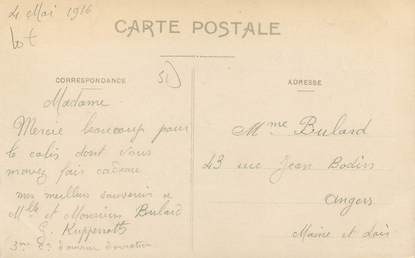 4 Mai 1916
lot
CARTE POSTALE
CORRESPONDANCE
ADRESSE
Madame
Mercie beaucoup pour
le colis dont vous
mavez fais cadeau
mes meilleurs souvenirs a
Mlle et Monsieur Bulard
Mme Bulard
43 rue Jean Bodin
Angers
Maine et Loir